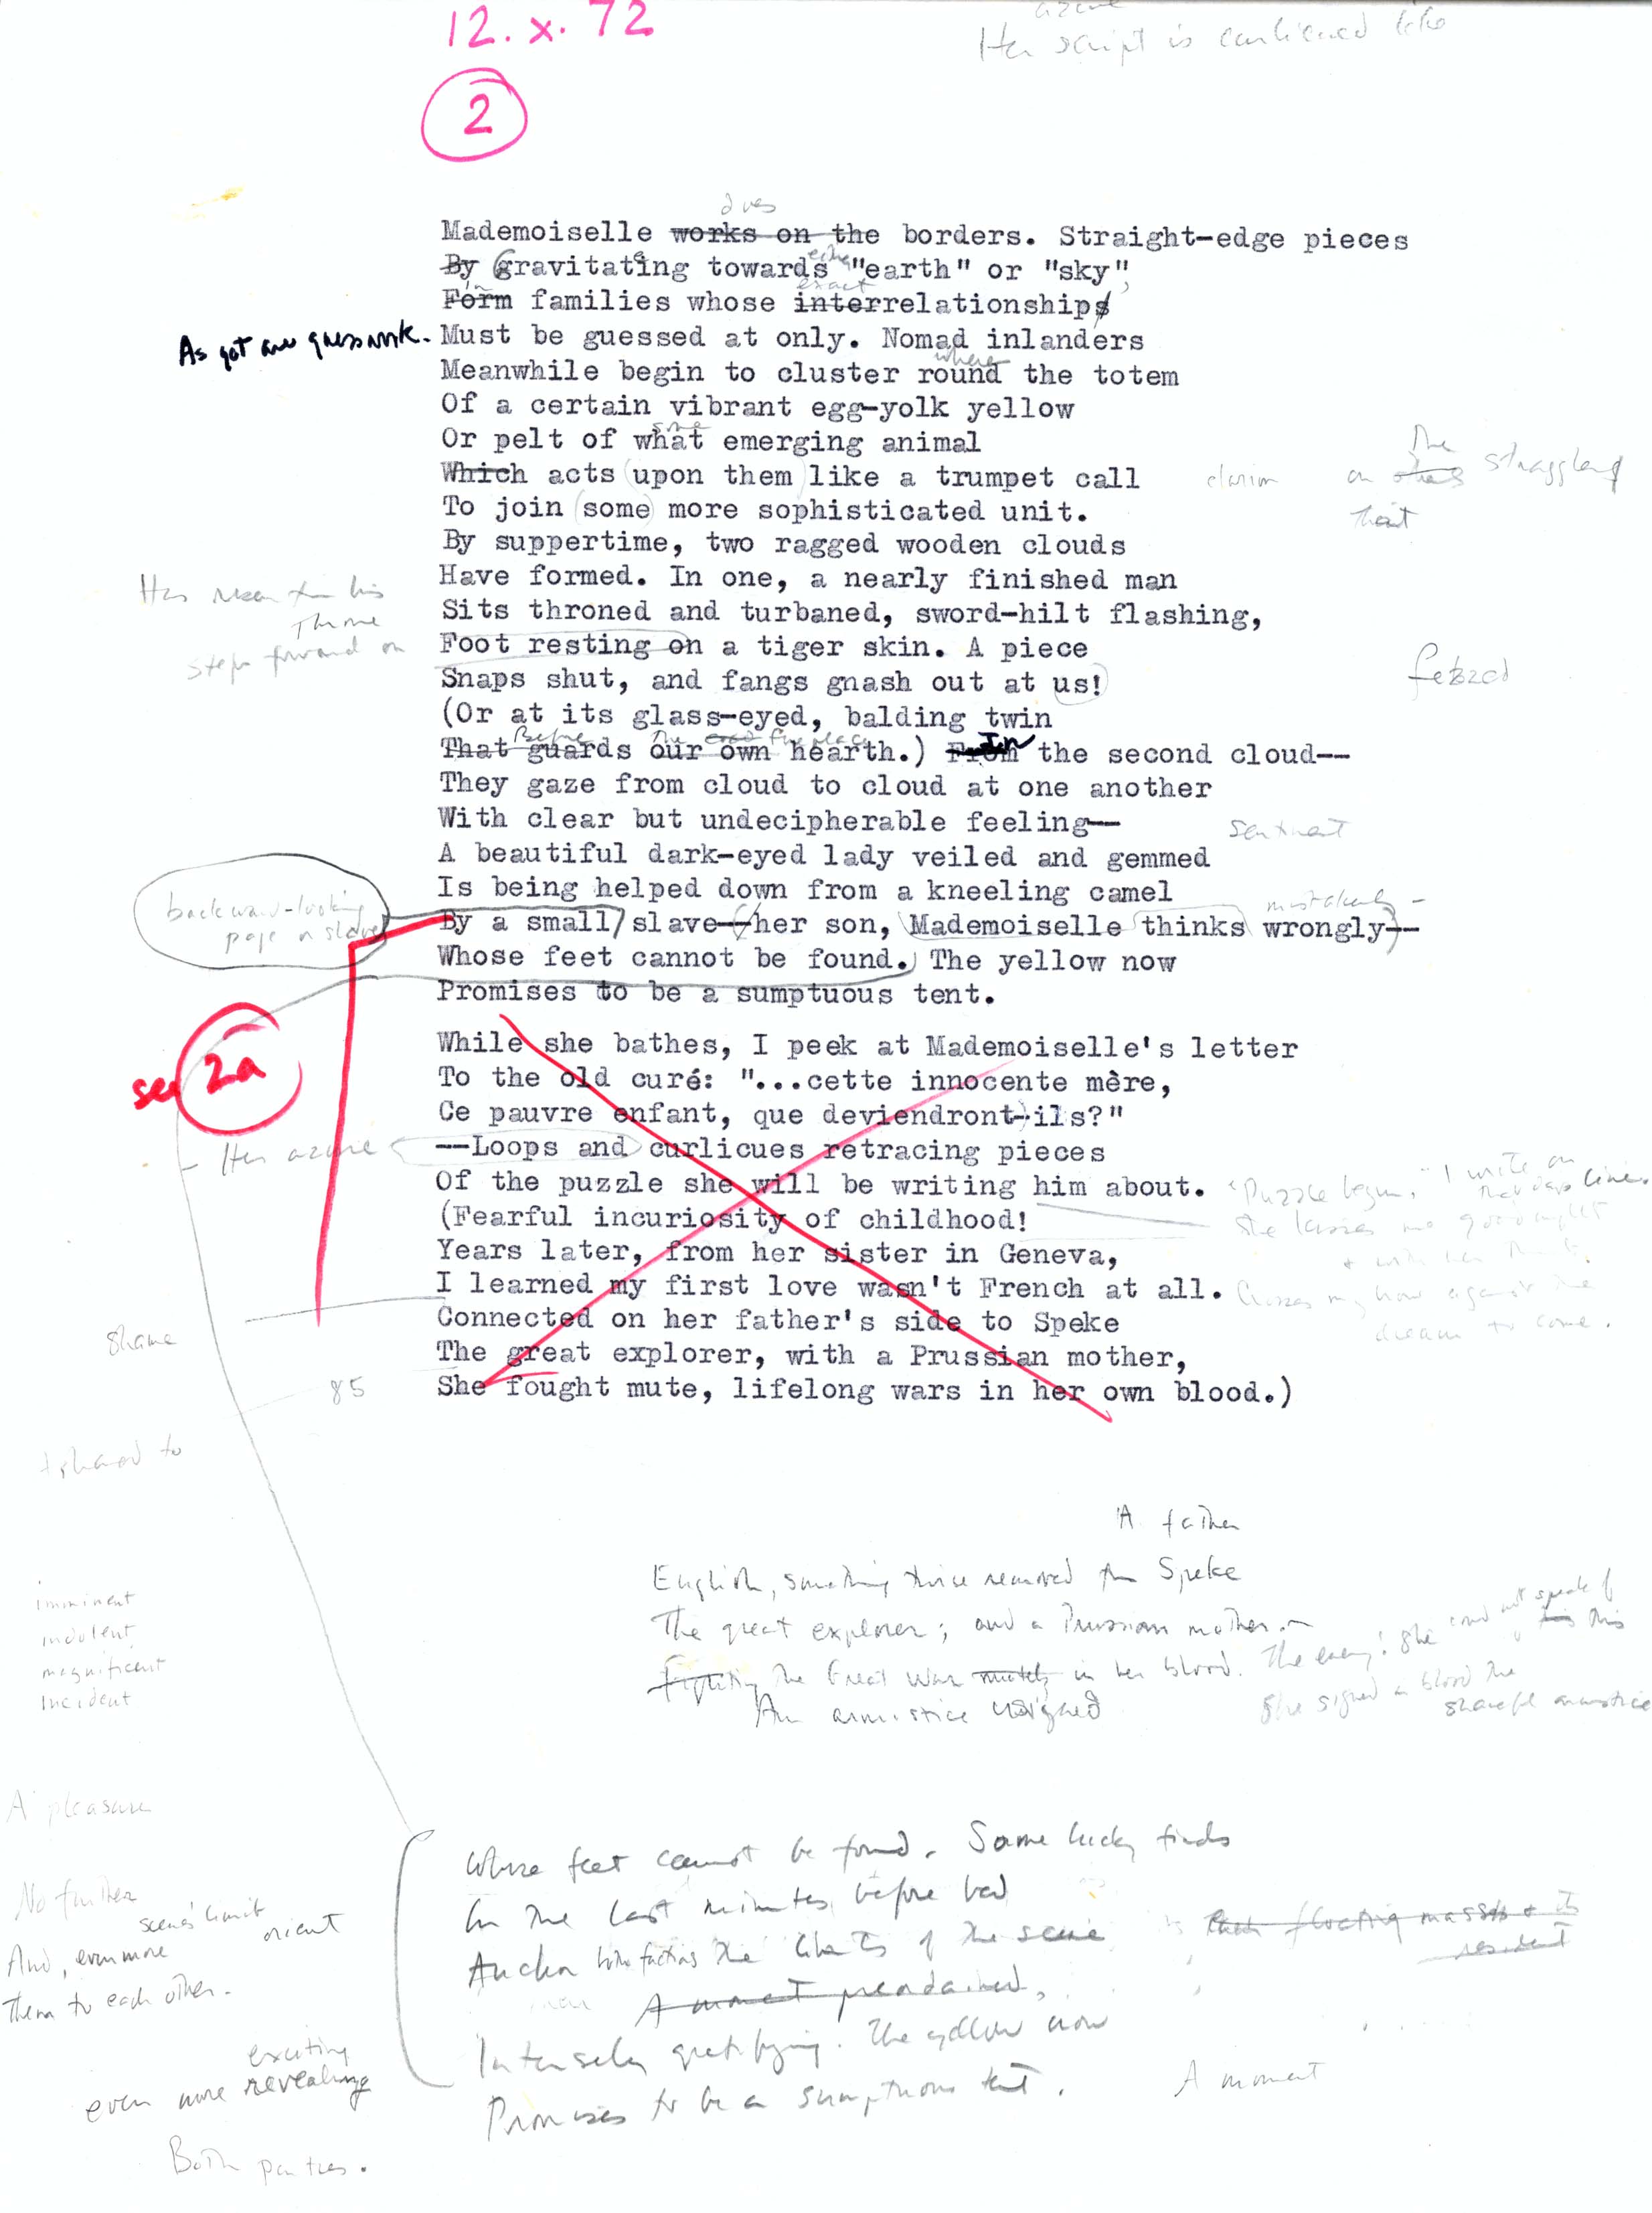 12. x. 72
azure
Her script is
2
does
Mademoiselle works on the borders. Straight-edge pieces
By Gravitating towards "earth" or "sky",
exact
Form families whose interrelationships
As yet are guesswork.
Must be guessed at only. Nomad inlanders
where
Meanwhile begin to cluster round the totem
Of a certain vibrant egg-yolk yellow
some
Or pelt of what emerging animal
Which acts upon them like a trumpet call
clarion
on
The
straggler
that
To join some more sophisticated unit.
By suppertime, two ragged wooden clouds
Have formed. In one, a nearly finished man
Has risen from his
throne
steps forward on
Sits throned and turbaned, sword-hilt flashing,
Foot resting on a tiger skin. A piece
Snaps shut, and fangs gnash out at us!
(Or at its glass-eyed, balding twin
Before the fireplace
That guards our own hearth.) From In the second cloud--
They gaze from cloud to cloud at one another
With clear but undecipherable feeling--
sentiment
A beautiful dark-eyed lady veiled and gemmed
Is being helped down from a kneeling camel
backward-looking
page or slave
mistakenly -
By a small slave--her son, Mademoiselle thinks wrongly--
Whose feet cannot be found. The yellow now
Promises to be a sumptuous tent.
see 2a
While she bathes, I peek at Mademoiselle's letter
To the old curé: "...cette innocente mère,
Ce pauvre enfant, que deviendront-ils?"
- Her azure
--Loops and curlicues retracing pieces
Of the puzzle she will be writing him about.
"Puzzle begun," I write on
that day's line.
She kisses me goodnight
+ with her
Crosses my brow against the
dream to come.
(Fearful incuriosity of childhood!
Years later, from her sister in Geneva,
I learned my first love wasn't French at all.
Connected on her father's side to Speke
shame
The great explorer, with a Prussian mother,
85
She fought mute, lifelong wars in her own blood.)
ashamed to
A father
English, something thrice removed from Speke
The great explorer; and a Prussian mother.--
Fighting the Great War mutely in her blood. The enemy! She could not speak of this
An armistice unsigned
She signed in blood the
shameful armistice
imminent
indolent
magnificent
incident
A pleasure
Whose feet cannot be found. Some lucky finds
In the last minutes before bed
Anchor both factions the limits of the scene
floating masses
resident
A moment preordained,
Intensely gratifying. The yellow now
Promises to be a sumptuous tent.
A moment
No further
scene's limit
orient
And, even more
Them to each other.
exciting
even more revealing
Both parties.